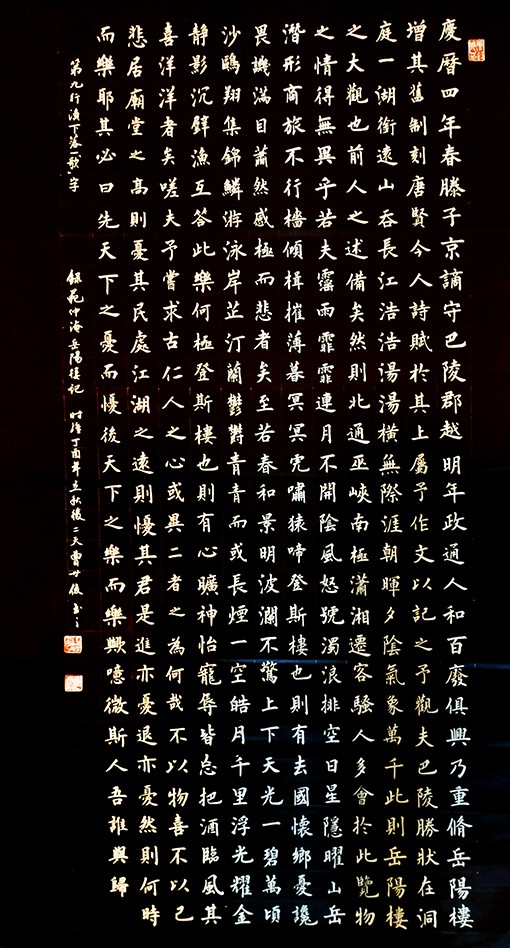 慶曆四年春滕子京謫守巴陵郡越明年政通人和百廢俱興乃重脩岳陽樓
增其舊制刻唐賢今人詩賦於其上屬予作文以記之予觀夫巴陵勝狀在洞
庭一湖銜遠山吞長江浩浩湯湯橫無際涯朝暉夕陰氣象萬千此則岳陽樓
之大觀也前人之述備矣然則北通巫峽南極瀟湘遷客騷人多會於此覽物
之情得無異乎若夫霪雨霏霏連月不開陰風怒號濁浪排空日星隱曜山岳
潛形商旅不行檣傾楫摧薄暮冥冥虎嘯猿啼登斯樓也則有去國懷鄉憂讒
畏譏滿目蕭然感極而悲者矣至若春和景明波瀾不驚上下天光一碧萬頃
沙鷗翔集錦鱗游泳岸芷汀蘭鬱鬱青青而或長煙一空皓月千里浮光耀金
靜影沉璧漁互答此樂何極登斯樓也則有心曠神怡寵辱皆忘把酒臨風其
喜洋洋者矣嗟夫予嘗求古仁人之心或異二者之為何哉不以物喜不以己
悲居廟堂之高則憂其民處江湖之遠則懮其君是進亦憂退亦憂然則何時
而樂耶其必曰先天下之憂而懮後天下之樂而樂歟噫微斯人吾誰與歸
第九行漁下落一歌字 錄范仲淹岳陽樓記 時維丁酉年立秋後二天曹廿俊書